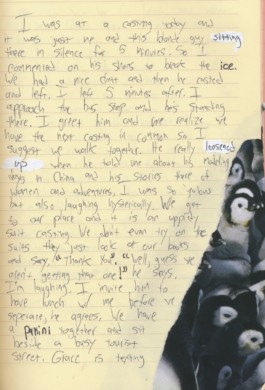 I was at a casting today and
it was just me and this blonde guy sitting
there in silence for 5 minutes. So I
commented on his shoes to break the ice.
We had a nice chat and then he casted
and left. I left 5 minutes after. I
approach the bus stop and he's standing
there. I greet him and we realize we
have the next casting in common so I
suggest we walk together. He really loosened
up when he told me about his modeling
days in China and his stories there of
women and adventures. I was so jealous
but also laughing hysterically. We get
to our place and it is an uppity
suit casting. We don't even try on the
suits they just look at our books
and say, "Thank You". "Well, guess we
aren't getting that one!" he says.
I'm laughing. I invite him to
have lunch w/ me before we
seperate, he agrees. We have
a panini together and sit
beside a busy tourist
street. Grace is texting